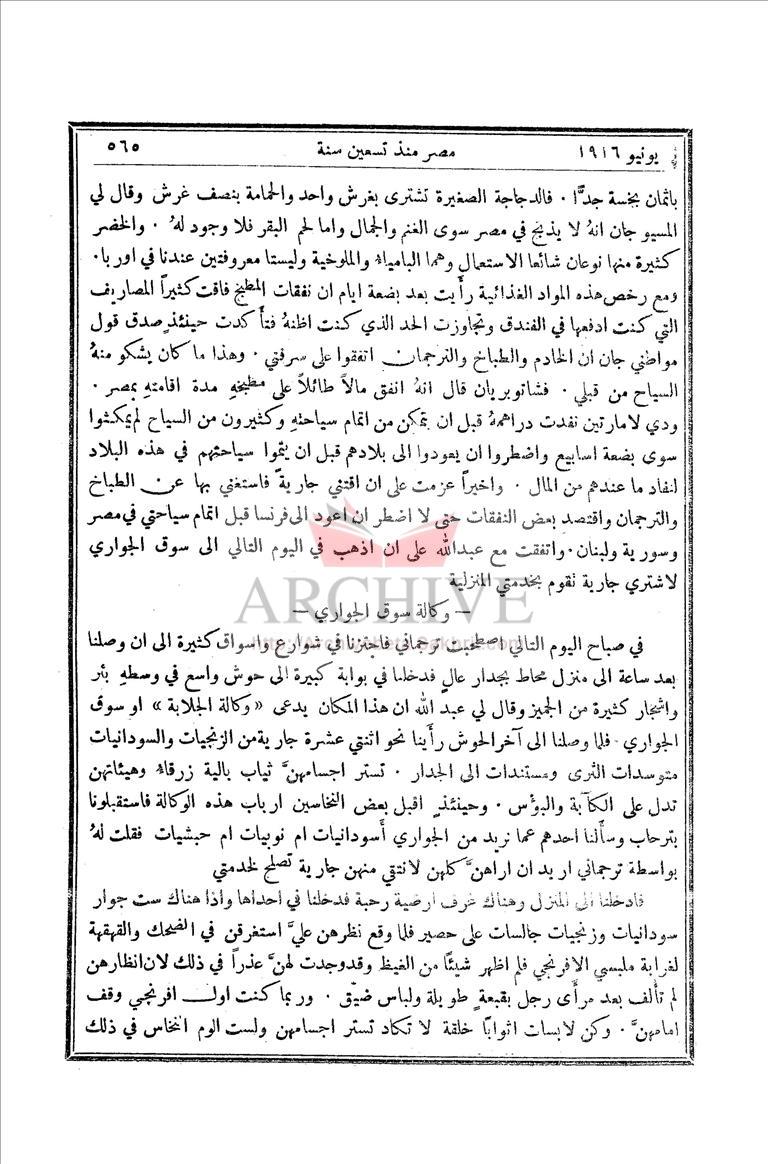 يونيو ١٩١٦ مصر منذ تسعين سنة ٥٦٥
باثمان بخسة جدًّا . فالدجاجة الصغيرة تشترى بغرش واحد والحمامة بنصف غرش وقال لي
المسيو جان انهُ لا يذبح في مصر سوى الغنم والجمال واما لحم البقر فلا وجود لهُ . والخضر
كثيرة منها نوعان شائعا الاستعمال وهما البامياء والملوخية وليستا معروفتين عندنا في اوربا.
ومع رخص هذه المواد الغذائية رأيت بعد بضعة ايام ان نفقات المطبخ فاقت كثيراً المصاريف
التي كنت ادفعها في الفندق وتجاوزت الحد الذي كنت اظنهُ فتأكدت حينئذٍ صدق قول
مواطني جان ان الخادم والطباخ والترجمان اتفقوا على سرقتي . وهذا ما كان يشكو منهُ
السياح من قبلي . فشاتوبريان قال انهُ انفق مالاً طائلاً على مطبخهِ مدة اقامتهِ بمصر .
ودي لامارتين نفدت دراهمهُ قبل ان يتمكن من اتمام سياحتهِ وكثيرون من السياح لم يمكثوا
سوى بضعة اسابيع واضطروا ان يعودوا الى بلادهم قبل ان يتموا سياحتهم في هذه البلاد
لنفاد ما عندهم من المال . واخيراً عزمت على ان اقتني جاريةً فاستغني بها عن الطباخ
والترجمان واقتصد بعض النفقات حتى لا اضطر ان اعود الى فرنسا قبل اتمام سياحتي في مصر
وسورية ولبنان . واتفقت مع عبدالله على ان اذهب في اليوم التالي الى سوق الجواري
لاشتري جارية تقوم بخدمتي المنزلية
ARCHIVE
— وكالة سوق الجواري —
في صباح اليوم التالي اصطحبت ترجماني فاجتزنا في شوارع واسواق كثيرة الى ان وصلنا
بعد ساعة الى منزل محاط بجدار عالٍ فدخلنا في بوابة كبيرة الى حوش واسع في وسطهِ بئر
واشجار كثيرة من الجميز وقال لي عبد الله ان هذا المكان يدعى « وكالة الجلابة » او سوق
الجواري . فلما وصلنا الى آخر الحوش رأينا نحو اثنتي عشرة جارية من الزنجيات والسودانيات
متوسدات الثرى ومستندات الى الجدار . تستر اجسامهنَّ ثياب بالية زرقاء وهيئاتهن
تدل على الكآبة والبؤس . وحينئذٍ اقبل بعض النخاسين ارباب هذه الوكالة فاستقبلونا
بترحاب وسألنا احدهم عما نريد من الجواري أسودانيات ام نوبيات ام حبشيات فقلت لهُ
بواسطة ترجماني اريد ان اراهنَّ كلهن لانتقي منهن جارية تصلح لخدمتي
فادخلنا الى المنزل وهناك غرف ارضية رحبة فدخلنا في احداها واذا هناك ست جوار
سودانيات وزنجيات جالسات على حصير فلما وقع نظرهن عليَّ استغرقن في الضحك والقهقهة
لغرابة ملبسي الافرنجي فلم اظهر شيئًا من الغيظ وقد وجدت لهنَّ عذراً في ذلك لان انظارهن
لم تألف بعد مرأى رجل بقبعةٍ طويلة ولباس ضيّق . وربما كنت اول افرنجي وقف
امامهنَّ . وكن لابسات اثوابًا خلقة لا تكاد تستر اجسامهن ولست الوم النخاس في ذلك